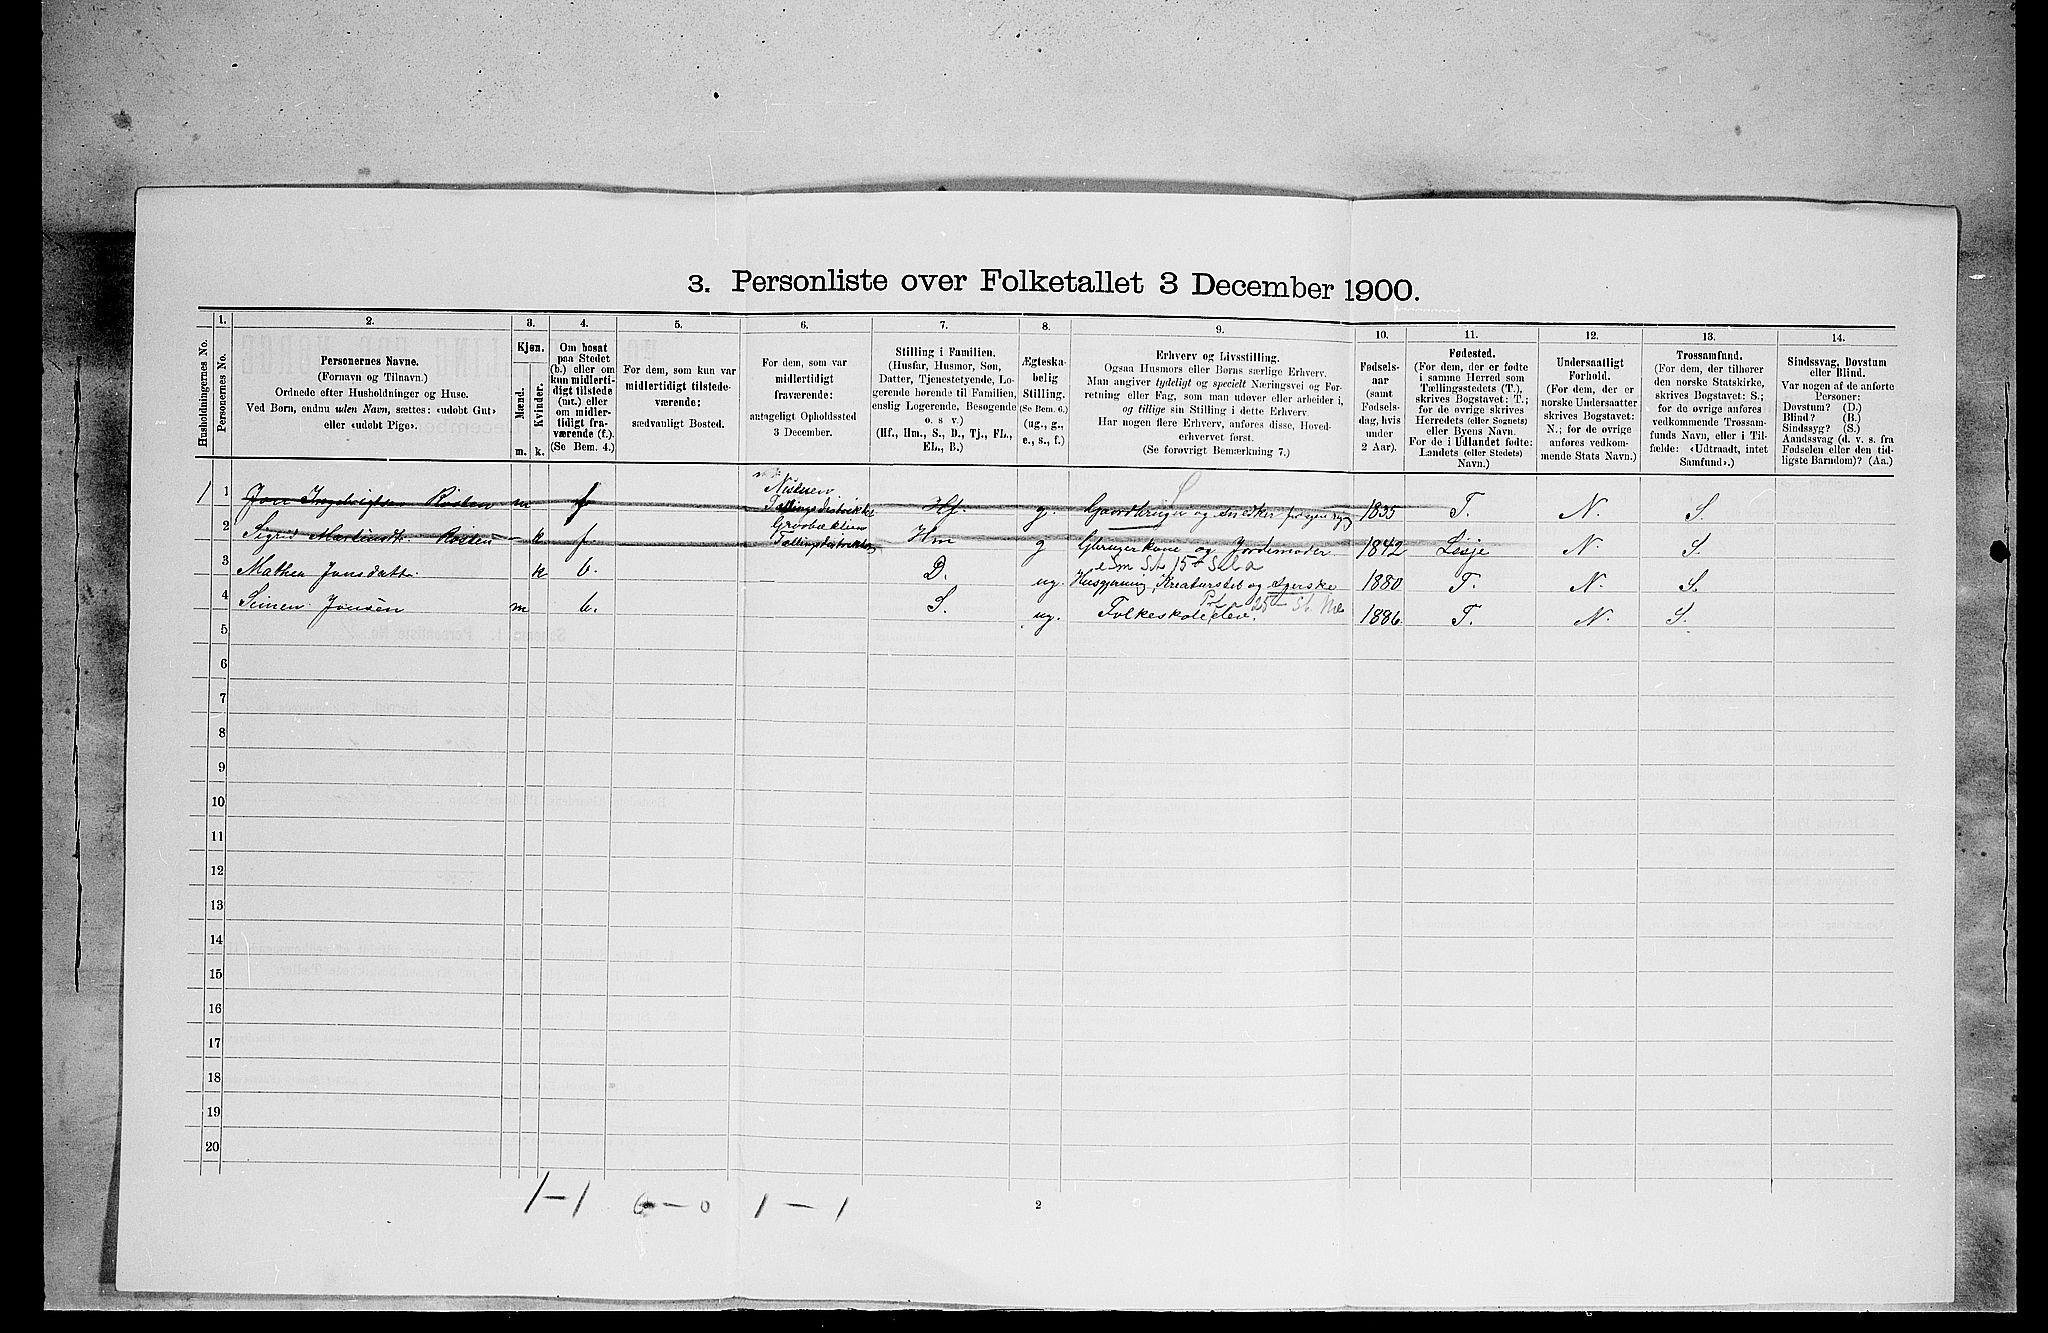 3. Personliste over Folketallet 3 December 1900.
1. 2. 3. 4. 5. 6. 7. 8. 9. 10. 11. 12. 13. 14.
Husholdningernes No.
Personernes No.
Personernes Navne.
(Fornavn og Tilnavn.)
Ordnede efter Husholdninger og Huse.
Ved Børn, endnu uden Navn, sættes: «udøbt Gut»
eller «udøbt Pige».
Kjøn.
Mænd.
Kvinder.
m. k.
Om bosat
paa Stedet
(b.) eller om
kun midlerti-
digt tilstede
(mt.) eller
om midler-
tidigt fra-
værende (f.).
(Se Bem. 4.)
For dem, som kun var
midlertidigt tilstede-
værende:
sædvanligt Bosted.
For dem, som var
midlertidigt
fraværende:
antageligt Opholdssted
3 December.
Stilling i Familien.
(Husfar, Husmor, Søn,
Datter, Tjenestetyende, Lo-
gerende hørende til Familien,
enslig Logerende, Besøgende
o. s. v.)
(Hf., Hm., S., D., Tj., FL.,
EL., B.)
Ægteska-
belig
Stilling.
(Se Bem. 6.)
(ug., g.,
e., s., f.)
Erhverv og Livsstilling.
Ogsaa Husmors eller Børns særlige Erhverv.
Man angiver tydeligt og specielt Næringsvei og For-
retning eller Fag, som man udøver eller arbeider i,
og tillige sin Stilling i dette Erhverv.
Har nogen flere Erhverv, anføres disse, Hoved-
erhvervet først.
(Se forøvrigt Bemærkning 7.)
Fødsels-
aar
(samt
Fødsels-
dag, hvis
under
2 Aar).
Fødested.
(For dem, der er fødte
i samme Herred som
Tællingsstedets (T.),
skrives Bogstavet: T.;
for de øvrige skrives
Herredets (eller Sognets)
eller Byens Navn.
For de i Udlandet fødte:
Landets (eller Stedets)
Navn.)
Undersaatligt
Forhold.
(For dem, der er
norske Undersaatter
skrives Bogstavet:
N.; for de øvrige
anføres vedkom-
mende Stats Navn.)
Trossamfund.
(For dem, der tilhører
den norske Statskirke,
skrives Bogstavet: S.;
for de øvrige anføres
vedkommende Trossam-
funds Navn, eller i Til-
fælde: «Udtraadt, intet
Samfund».)
Sindssvag, Døvstum
eller Blind.
Var nogen af de anførte
Personer:
Døvstum? (D.)
Blind? (B.)
Sindssyg? (S.)
Aandssvag (d. v. s. fra
Fødselen eller den tid-
ligste Barndom)? (Aa.)
1 1 Jon Rosten m f Tællingsdistriktet Hf. g. Gaardbruger og Snedker 1835 T. N. S.
2 Sigrid Rosten k f. Hm g Gbrugerkone og Jordemoder 1842 Lesje N. S.
3 Mathea Jonsdatt. k b. D. ug. Husgjerning, Kreaturstel og 1880 T. N. S.
4 Simen Jonsen m b. S. ug. Folkeskoleelev. 1886. T. N. S.
5
6
7
8
9
10
11
12
13
14
15
16
17
18
19
20
1-1 0-0 1-1
2